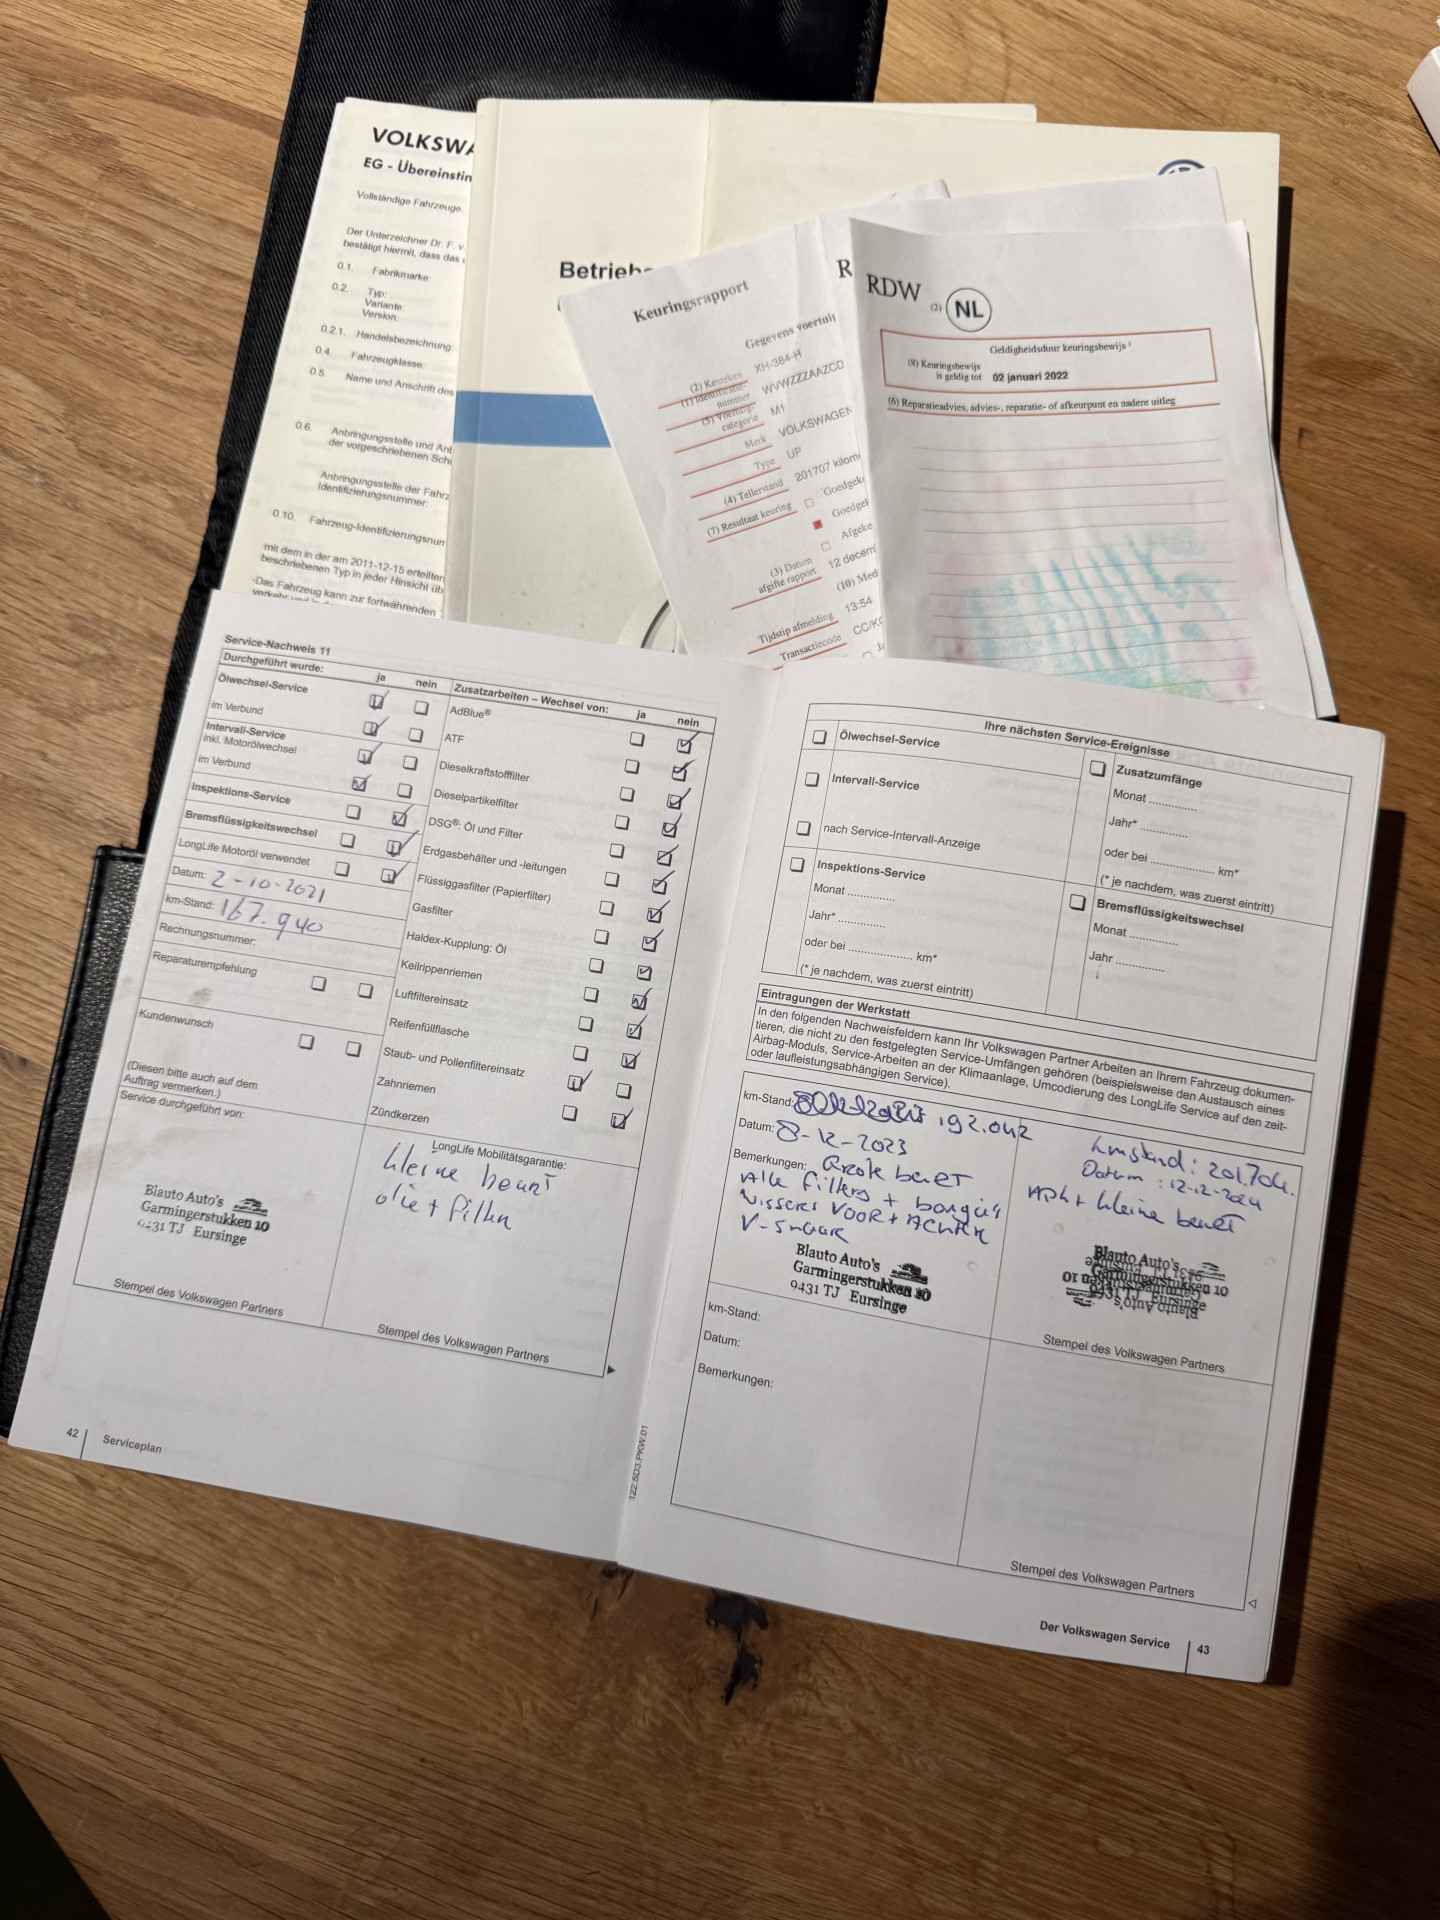 VOLKSWA
EG - Übereinstin
Vollständige Fahrzeuge.
Der Unterzeichner Dr. F. v
bestätigt hiermit, dass das
0.1. Fabrikmarke:
0.2. Typ:
Variante:
Version:
0.2.1. Handelsbezeichnung:
0.4. Fahrzeugklasse:
0.5. Name und Anschrift des
0.6. Anbringungsstelle und Anb
der vorgeschriebenen Sch
Anbringungsstelle der Fahrz
Identifizierungsnummer:
0.10. Fahrzeug-Identifizierungsnum
mit dem in der am 2011-12-15 erteilten
beschriebenen Typ in jeder Hinsicht üb
-Das Fahrzeug kann zur fortwährenden
Betriebs
Keuringsrapport
R
Gegevens voertui
(2) Kenteken XH-384-H
(1) Identificatie-
nummer WVWZZZAAZCD
(5) Voertuig-
categorie M1
Merk VOLKSWAGEN
Type UP
(4) Tellerstand 201707 kilom
(7) Resultaat keuring
Goedgek
Goedgek
Afgeke
(3) Datum
afgifte rapport 12 decem
(10) Med
Tijdstip afmelding 13:54
Transactiecode CC/KC
RDW
(2) NL
Geldigheidsduur keuringsbewijs
(8) Keuringsbewijs
is geldig tot 02 januari 2022
(6) Reparatieadvies, advies-, reparatie- of afkeurpunt en nadere uitleg
Service-Nachweis 11
Durchgeführt wurde: ja nein
Ölwechsel-Service
im Verbund
Intervall-Service
inkl. Motorölwechsel
im Verbund
Inspektions-Service
Bremsflüssigkeitswechsel
LongLife Motoröl verwendet
Datum: 2-10-2021
km-Stand: 167.940
Rechnungsnummer:
Reparaturempfehlung
Kundenwunsch
(Diesen bitte auch auf dem
Auftrag vermerken.)
Service durchgeführt von:
Blauto Auto's
Garmingerstukken 10
9431 TJ Eursinge
Stempel des Volkswagen Partners
Zusatzarbeiten – Wechsel von: ja nein
AdBlue®
ATF
Dieselkraftstofffilter
Dieselpartikelfilter
DSG®- Öl und Filter
Erdgasbehälter und -leitungen
Flüssiggasfilter (Papierfilter)
Gasfilter
Haldex-Kupplung: Öl
Keilrippenriemen
Luftfiltereinsatz
Reifenfüllflasche
Staub- und Pollenfiltereinsatz
Zahnriemen
Zündkerzen
LongLife Mobilitätsgarantie:
kleine beurt
olie + filter
Stempel des Volkswagen Partners
42 Serviceplan
122.5D3.PKW.01
Ihre nächsten Service-Ereignisse
Ölwechsel-Service
Intervall-Service
nach Service-Intervall-Anzeige
Inspektions-Service
Monat ..............
Jahr* ..............
oder bei ................... km*
(* je nachdem, was zuerst eintritt)
Zusatzumfänge
Monat ..............
Jahr* ..............
oder bei ................... km*
(* je nachdem, was zuerst eintritt)
Bremsflüssigkeitswechsel
Monat ..............
Jahr ..............
Eintragungen der Werkstatt
In den folgenden Nachweisfeldern kann Ihr Volkswagen Partner Arbeiten an Ihrem Fahrzeug dokumen-
tieren, die nicht zu den festgelegten Service-Umfängen gehören (beispielsweise den Austausch eines
Airbag-Moduls, Service-Arbeiten an der Klimaanlage, Umcodierung des LongLife Service auf den zeit-
oder laufleistungsabhängigen Service).
km-Stand: 192.042
Datum: 8-12-2023
Bemerkungen: Grote beurt
Alle filters + bougie's
Wissers VOOR + ACHTER
V-snaar
Blauto Auto's
Garmingerstukken 10
9431 TJ Eursinge
kmstand: 201.704.
Datum: 12-12-2024
APK + kleine beurt
Blauto Auto's
Garmingerstukken 10
9431 TJ Eursinge
Stempel des Volkswagen Partners
km-Stand:
Datum:
Bemerkungen:
Stempel des Volkswagen Partners
Der Volkswagen Service 43